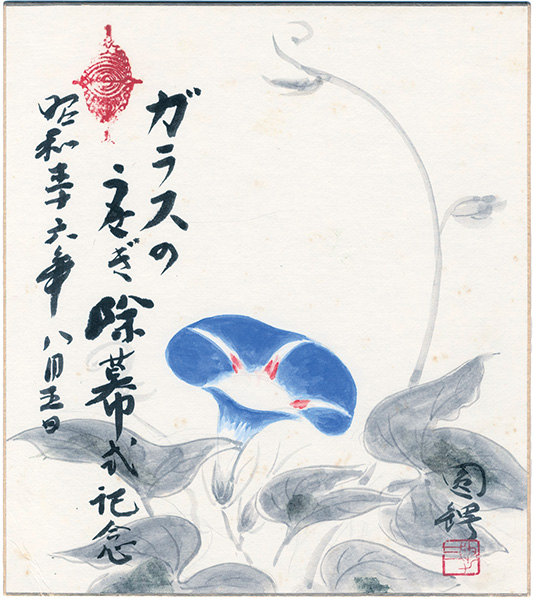 ガラスの
うさぎ除幕式記念
昭和六十年八月五日
圓鍔